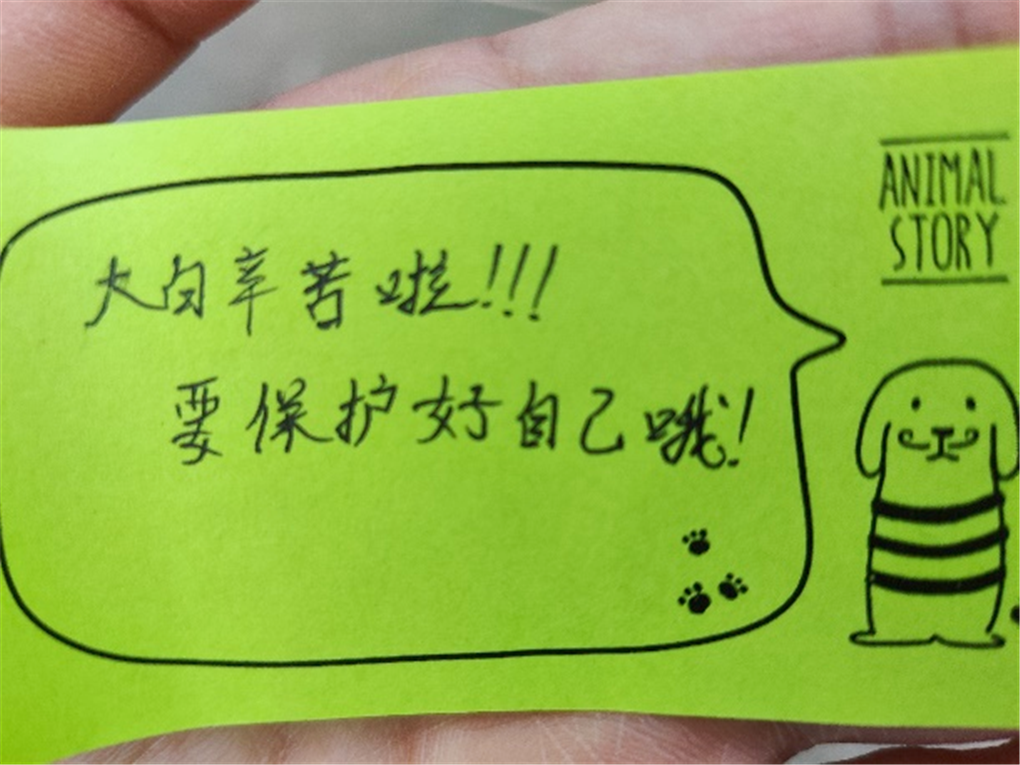 大白辛苦啦!!!
要保护好自己哦!
ANIMAL
STORY